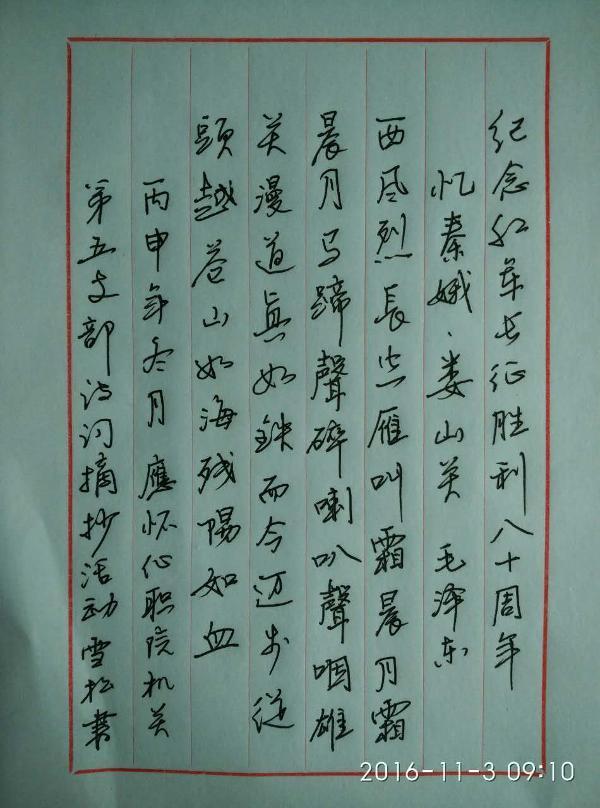 纪念红军长征胜利八十周年
忆秦娥·娄山关 毛泽东
西风烈長空雁叫霜晨月霜
晨月马蹄聲碎喇叭聲咽雄
关漫道真如鉄而今迈步從
頭越苍山如海残陽如血
丙申年冬月應怀化职院机关
第五支部诗词摘抄活动雪松书
2016-11-3 09:10